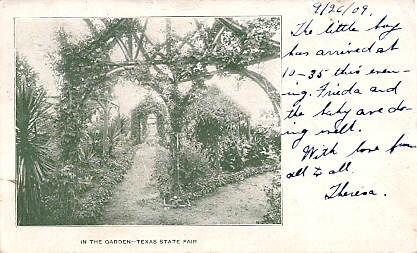 9/26/09.
The little boy
has arrived at
10-35 this even-
ing. Frieda and
the baby are do-
ing well.
With love from
all to all.
Theresa.
IN THE GARDEN—TEXAS STATE FAIR